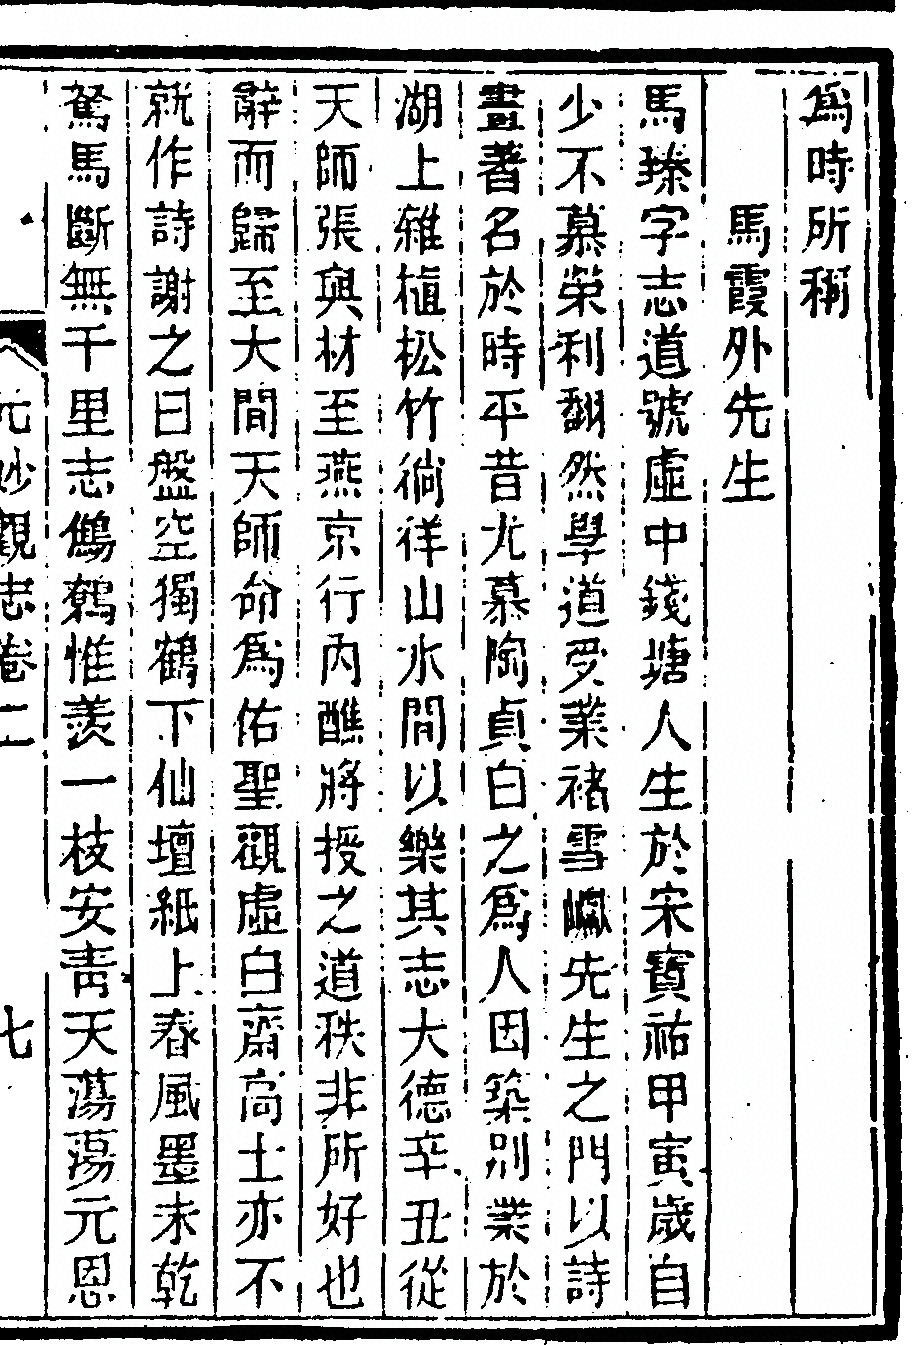 爲時所稱
馬霞外先生
馬臻字志道號虛中錢塘人生於宋寶祐甲寅歲自
少不慕榮利翻然學道受業褚雪巘先生之門以詩
畫著名於時平昔尤慕陶貞白之爲人因築别業於
湖上雜植松竹徜徉山水間以樂其志大德辛丑從
天師張與材至燕京行內醮將授之道秩非所好也
辭而歸至大間天師命爲佑聖觀虛白齋高士亦不
就作詩謝之曰盤空獨鶴下仙壇紙上春風墨未乾
駑馬斷無千里志鷦鷯惟羨一枝安靑天蕩蕩元恩
元妙觀志卷二 七